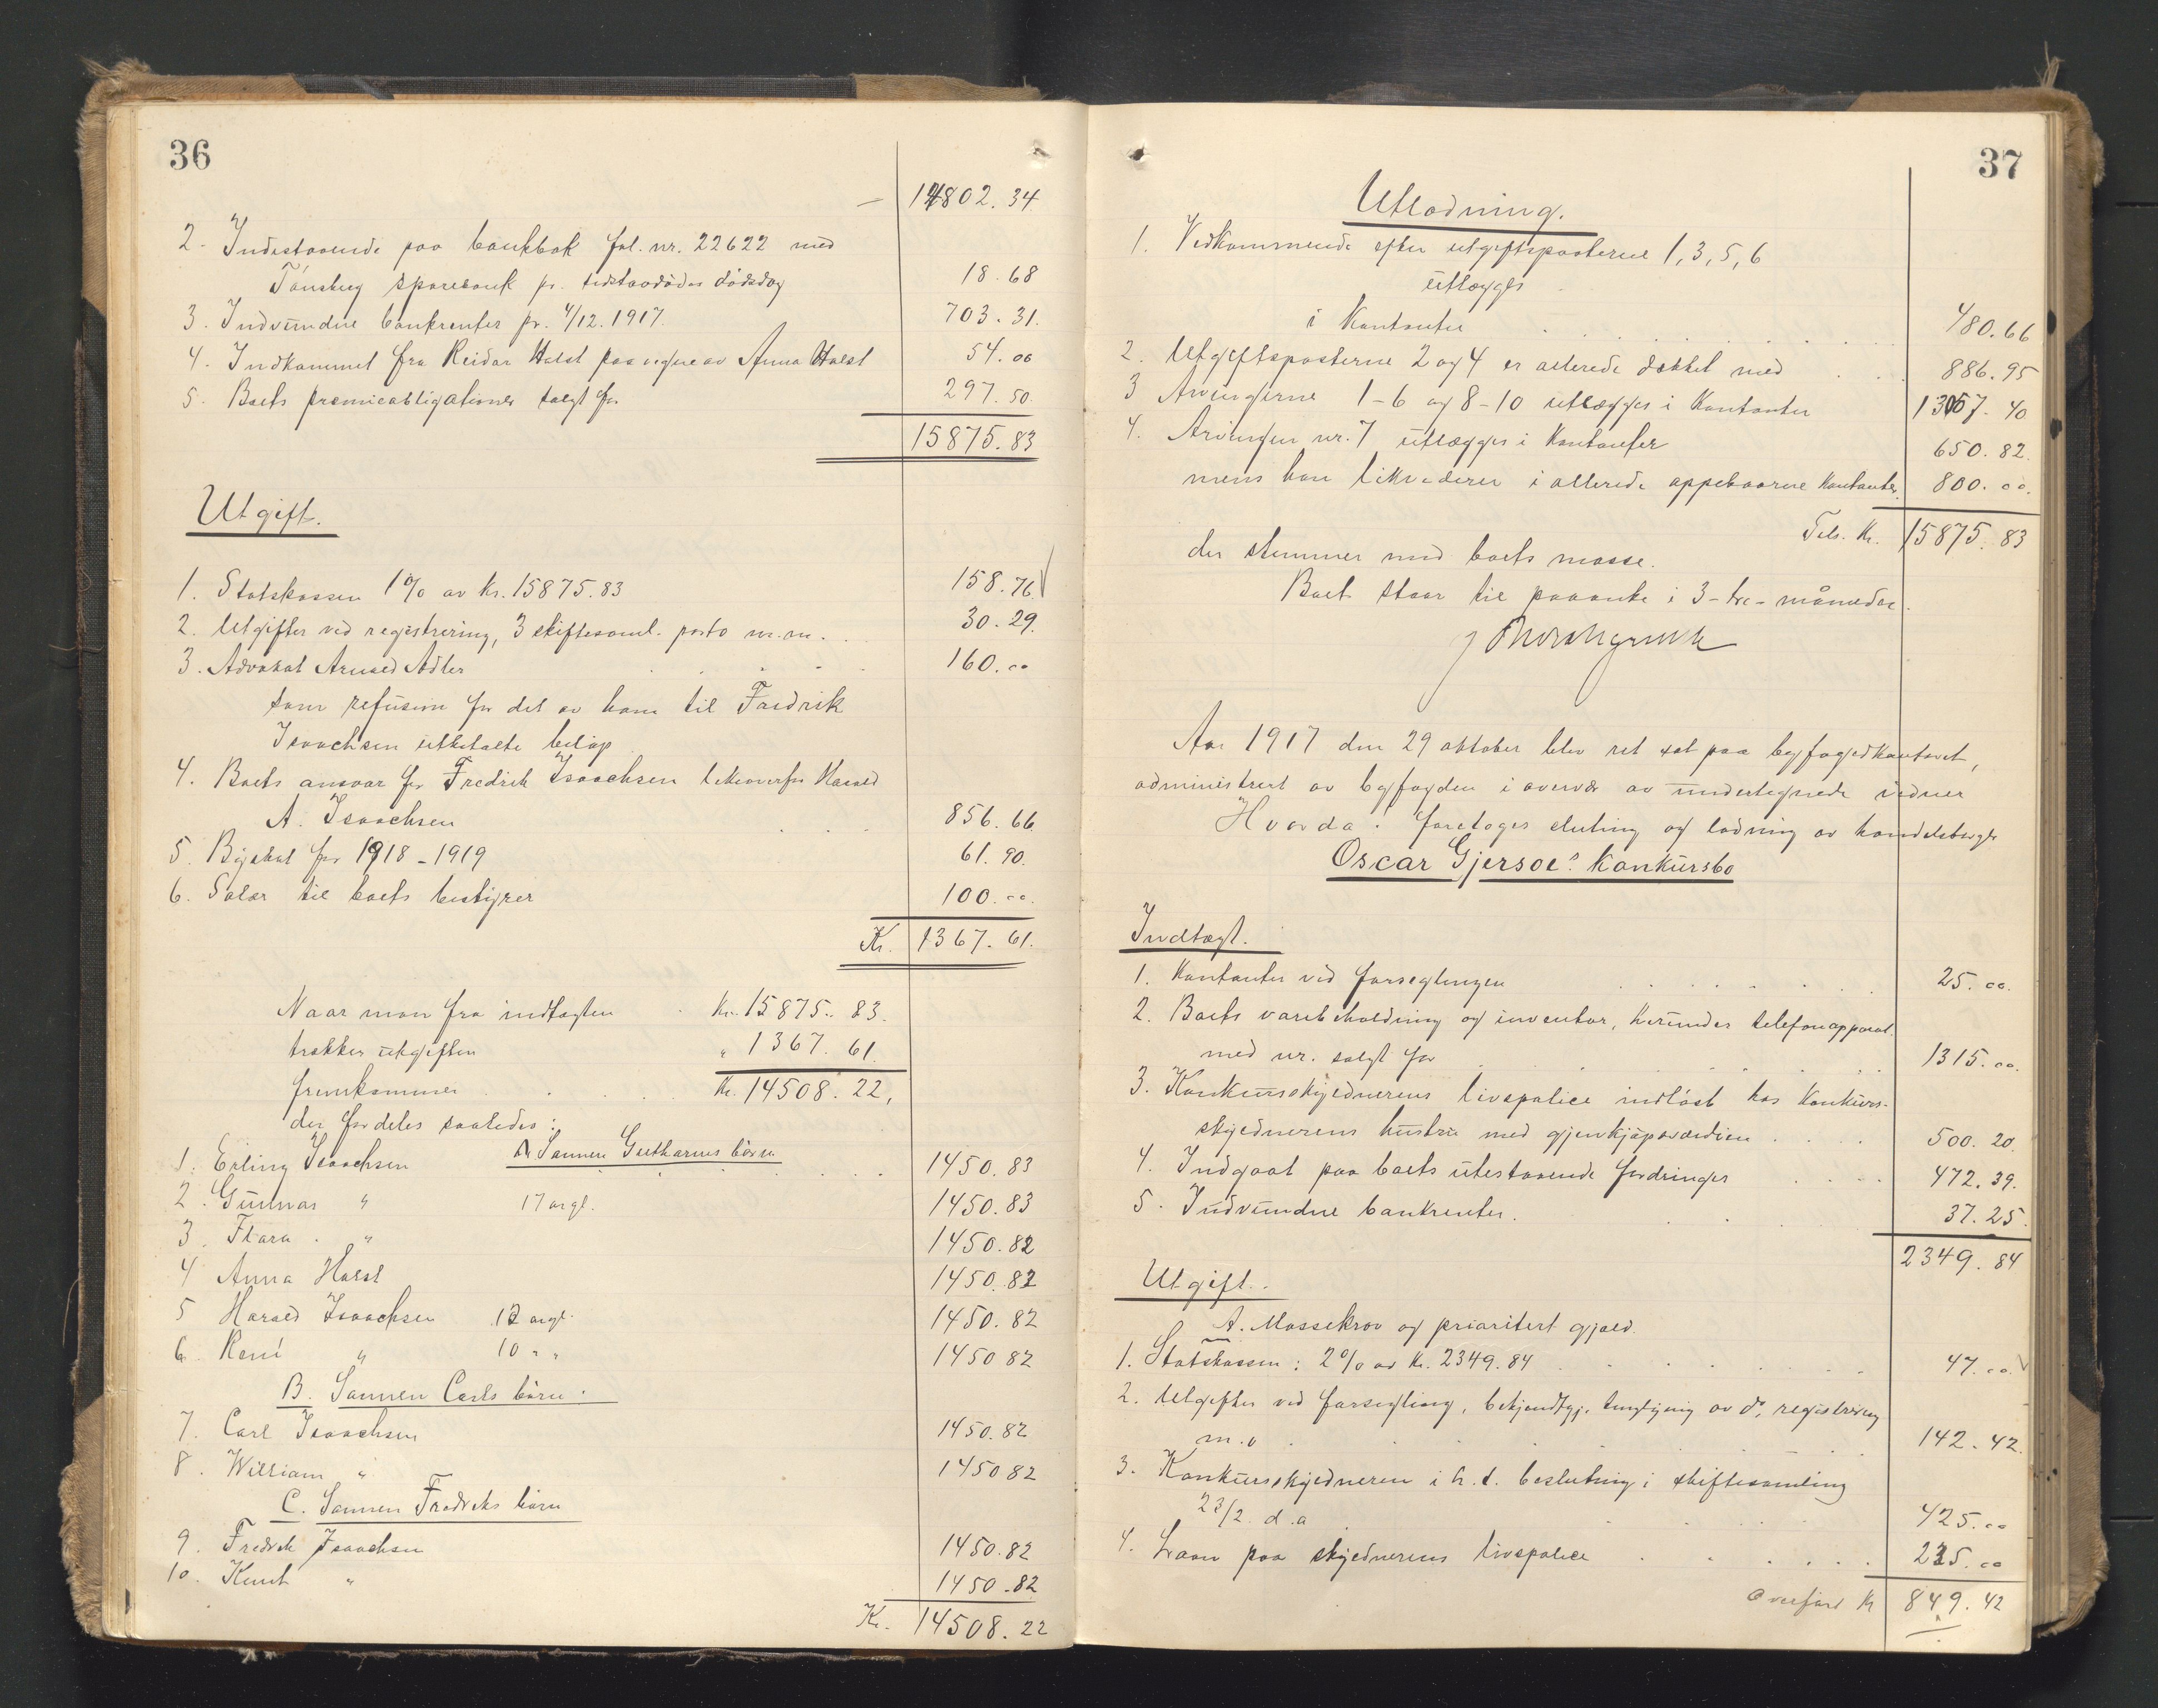 36
— 14802.34
2. Indestaaende paa bankbok fol. nr. 22622 med
Tønsberg sparebank pr. avdødes dødsdag 18.68
3. Indvundne bankrenter pr. 4/12. 1917. 703.31.
4. Indkommet fra Reidar Holst paa vegne av Anna Holst 54.00
5. Boets premieobligationer solgt for 297.50.
15875.83
Utgift.
1. Statskassen 1% av Kr. 15875.83 158.76.
2. Utgifter ved registrering, 3 skiftesaml. porto m.m. 30.29.
3. Advokat Adler 160.00
som refusion for det av ham til Fredrik
Isaachsen utbetalte beløp
4. Boets ansvar for Fredrik Isaachsen likeoverfor Harald
A. Isaachsen 856.66.
5. Byskat for 1918-1919 61.90.
6. Salær til boets bestyrer 100.00.
Kr. 1367.61.
Naar man fra indtægten Kr. 15875.83.
trækker utgiften " 1367.61.
fremkommer Kr. 14508.22,
der fordeles saaledes:
A Sønnen børn
1. Erling Isaachsen 1450.83
2. Gunnar " 17 aar gl. 1450.83
3. Flora " 1450.82
4 Anna Holst 1450.82
5 Harald Isaachsen 12 aar gl. 1450.82
6. René " 10 " " 1450 82
B. Sønnen Carls børn.
7. Carl Isaachsen 1450.82
8. William " 1450 82
C. Sønnen Fredriks børn
9. Fredrik Isaachsen 1450.82
10. Knut " 1450.82
Kr. 14508.22
37
Utlodning.
1. Vedkommende efter utgiftsposterne 1, 3, 5, 6
utlægges
i Kontanter 480.66
2. Utgiftsposterne 2 og 4 er allerede dækket med 886.95
3 Arvingerne 1-6 og 8-10 utlægges i Kontanter 13057.40
4. Arvingen nr. 7 utlægges i Kontanter 650.82.
mens han likviderer i allerede oppebaarne Kontanter 800.00.
Tils. Kr. 15875.83
der stemmer med boets masse.
Boet staar til paaanke i 3-tre-måneder.
Aar 1917 den 29 oktober blev ret sat paa byfogedkontoret,
administrert av byfogden i overvær av undertegnede vidner
Hvorda: foretoges slutning og lodning av handelsborger
Oscar Gjersøe's konkursbo
Indtægt.
1. Kontanter ved forseglingen 25.00.
2. Boets varebeholdning og inventar, herunder telefonapparat
med nr. solgt for 1315.00.
3. Konkursskyldnerens livspolice indløst hos Konkurs-
skyldnerens hustru med gjenkjøpsværdien 500.20.
4. Indgaat paa boets utestaaende fordringer 472.39.
5. Indvundne bankrenter. 37.25.
2349.84
Utgift.
A. Massekrav og prioritert gjæld.
1. Statskassen: 2% av Kr. 2349.84 47.00.
2. Utgifter ved forsegling, bekjendtgj. tinglysning av do, registrering
m.v. 142.42.
3. Konkursskyldneren i h. t. beslutning i skiftesamling
23/2 d.a 425.00
4. Laan paa skyldnerens livspolice 235.00
Overført Kr 849.42